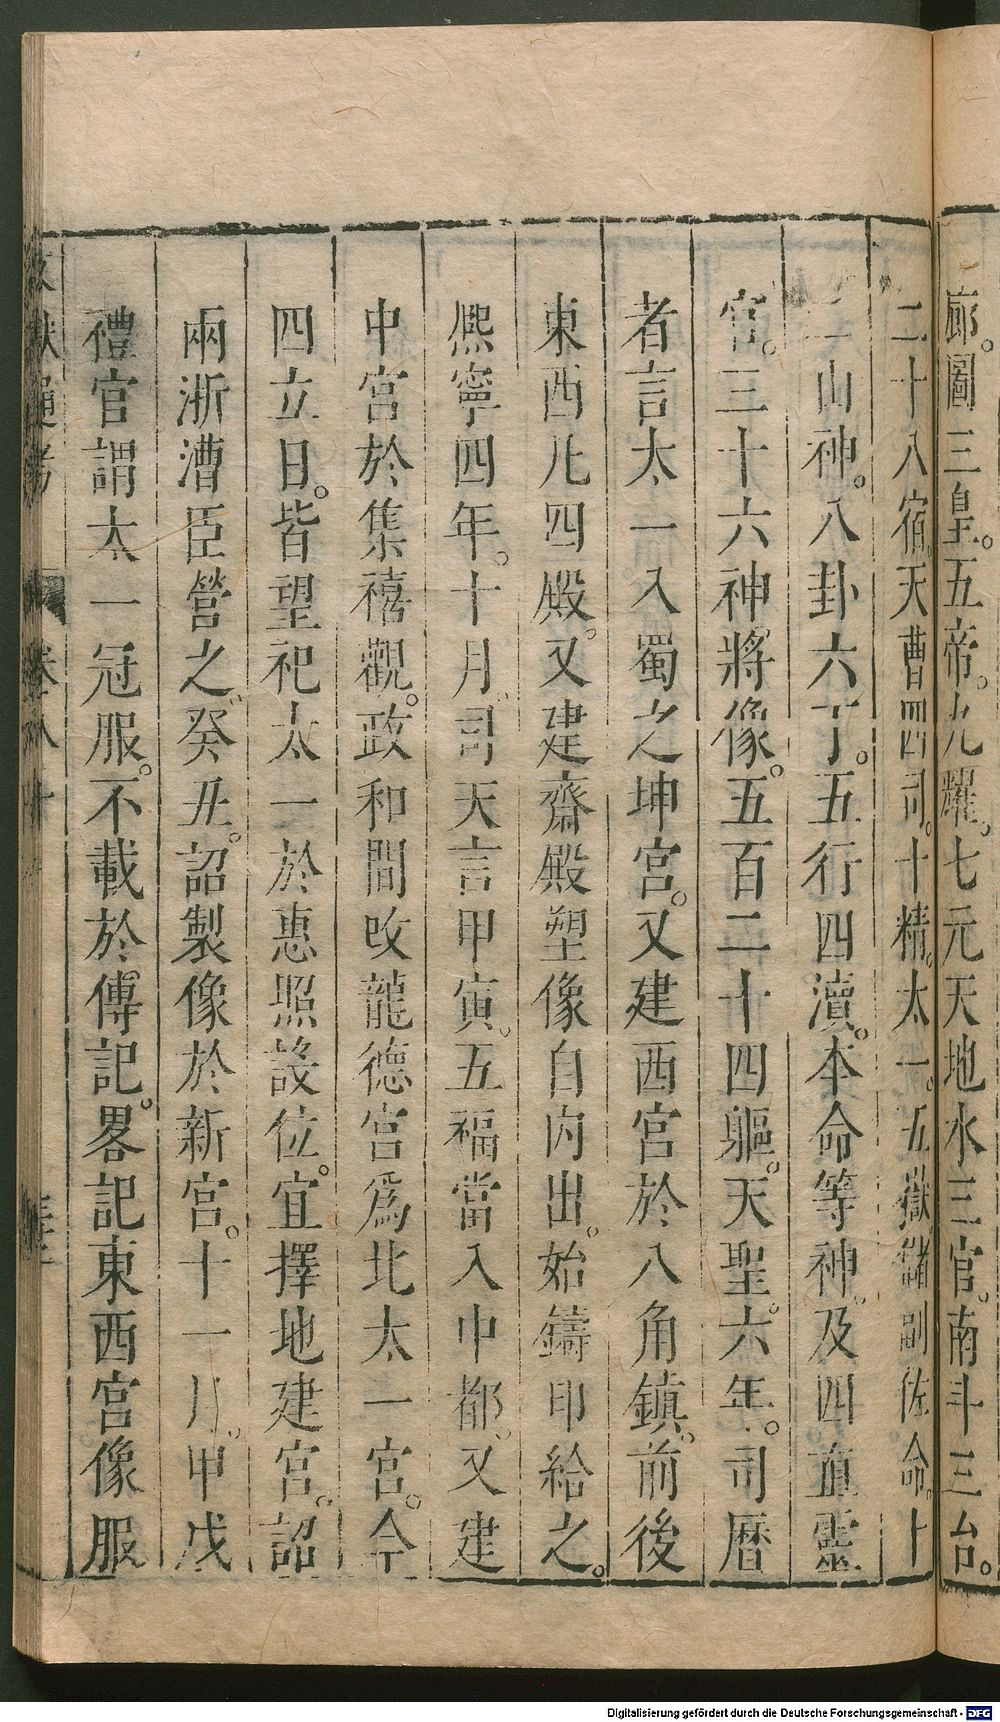 廊。圖三皇。五帝。九耀。七元天地水三官。南斗三台。
二十八宿。天曹四司。十精。太一。五嶽儲副佐命。十
二山神。八卦六丁。五行四瀆。本命等神。及四直靈
官。三十六神將像。五百二十四軀。天聖。六年。司曆
者言太一入蜀之坤宮。又建西宮於八角鎮。前後
東西凡四殿。又建齋殿塑像自內出。始鑄印給之。
熈寧四年。十月。司天言甲寅。五福當入中都。又建
中宮於集禧觀。政和間改龍德宮爲北太一宮。今
四立日。皆望祀太一於惠照設位。宜擇地建宮。詔
兩浙漕臣營之。癸丑。詔製像於新宮。十一月。甲戌
禮官謂太一冠服。不載於傳記。畧記東西宮像服
文獻通考 卷八十
Digitalisierung gefördert durch die Deutsche Forschungsgemeinschaft - DFG